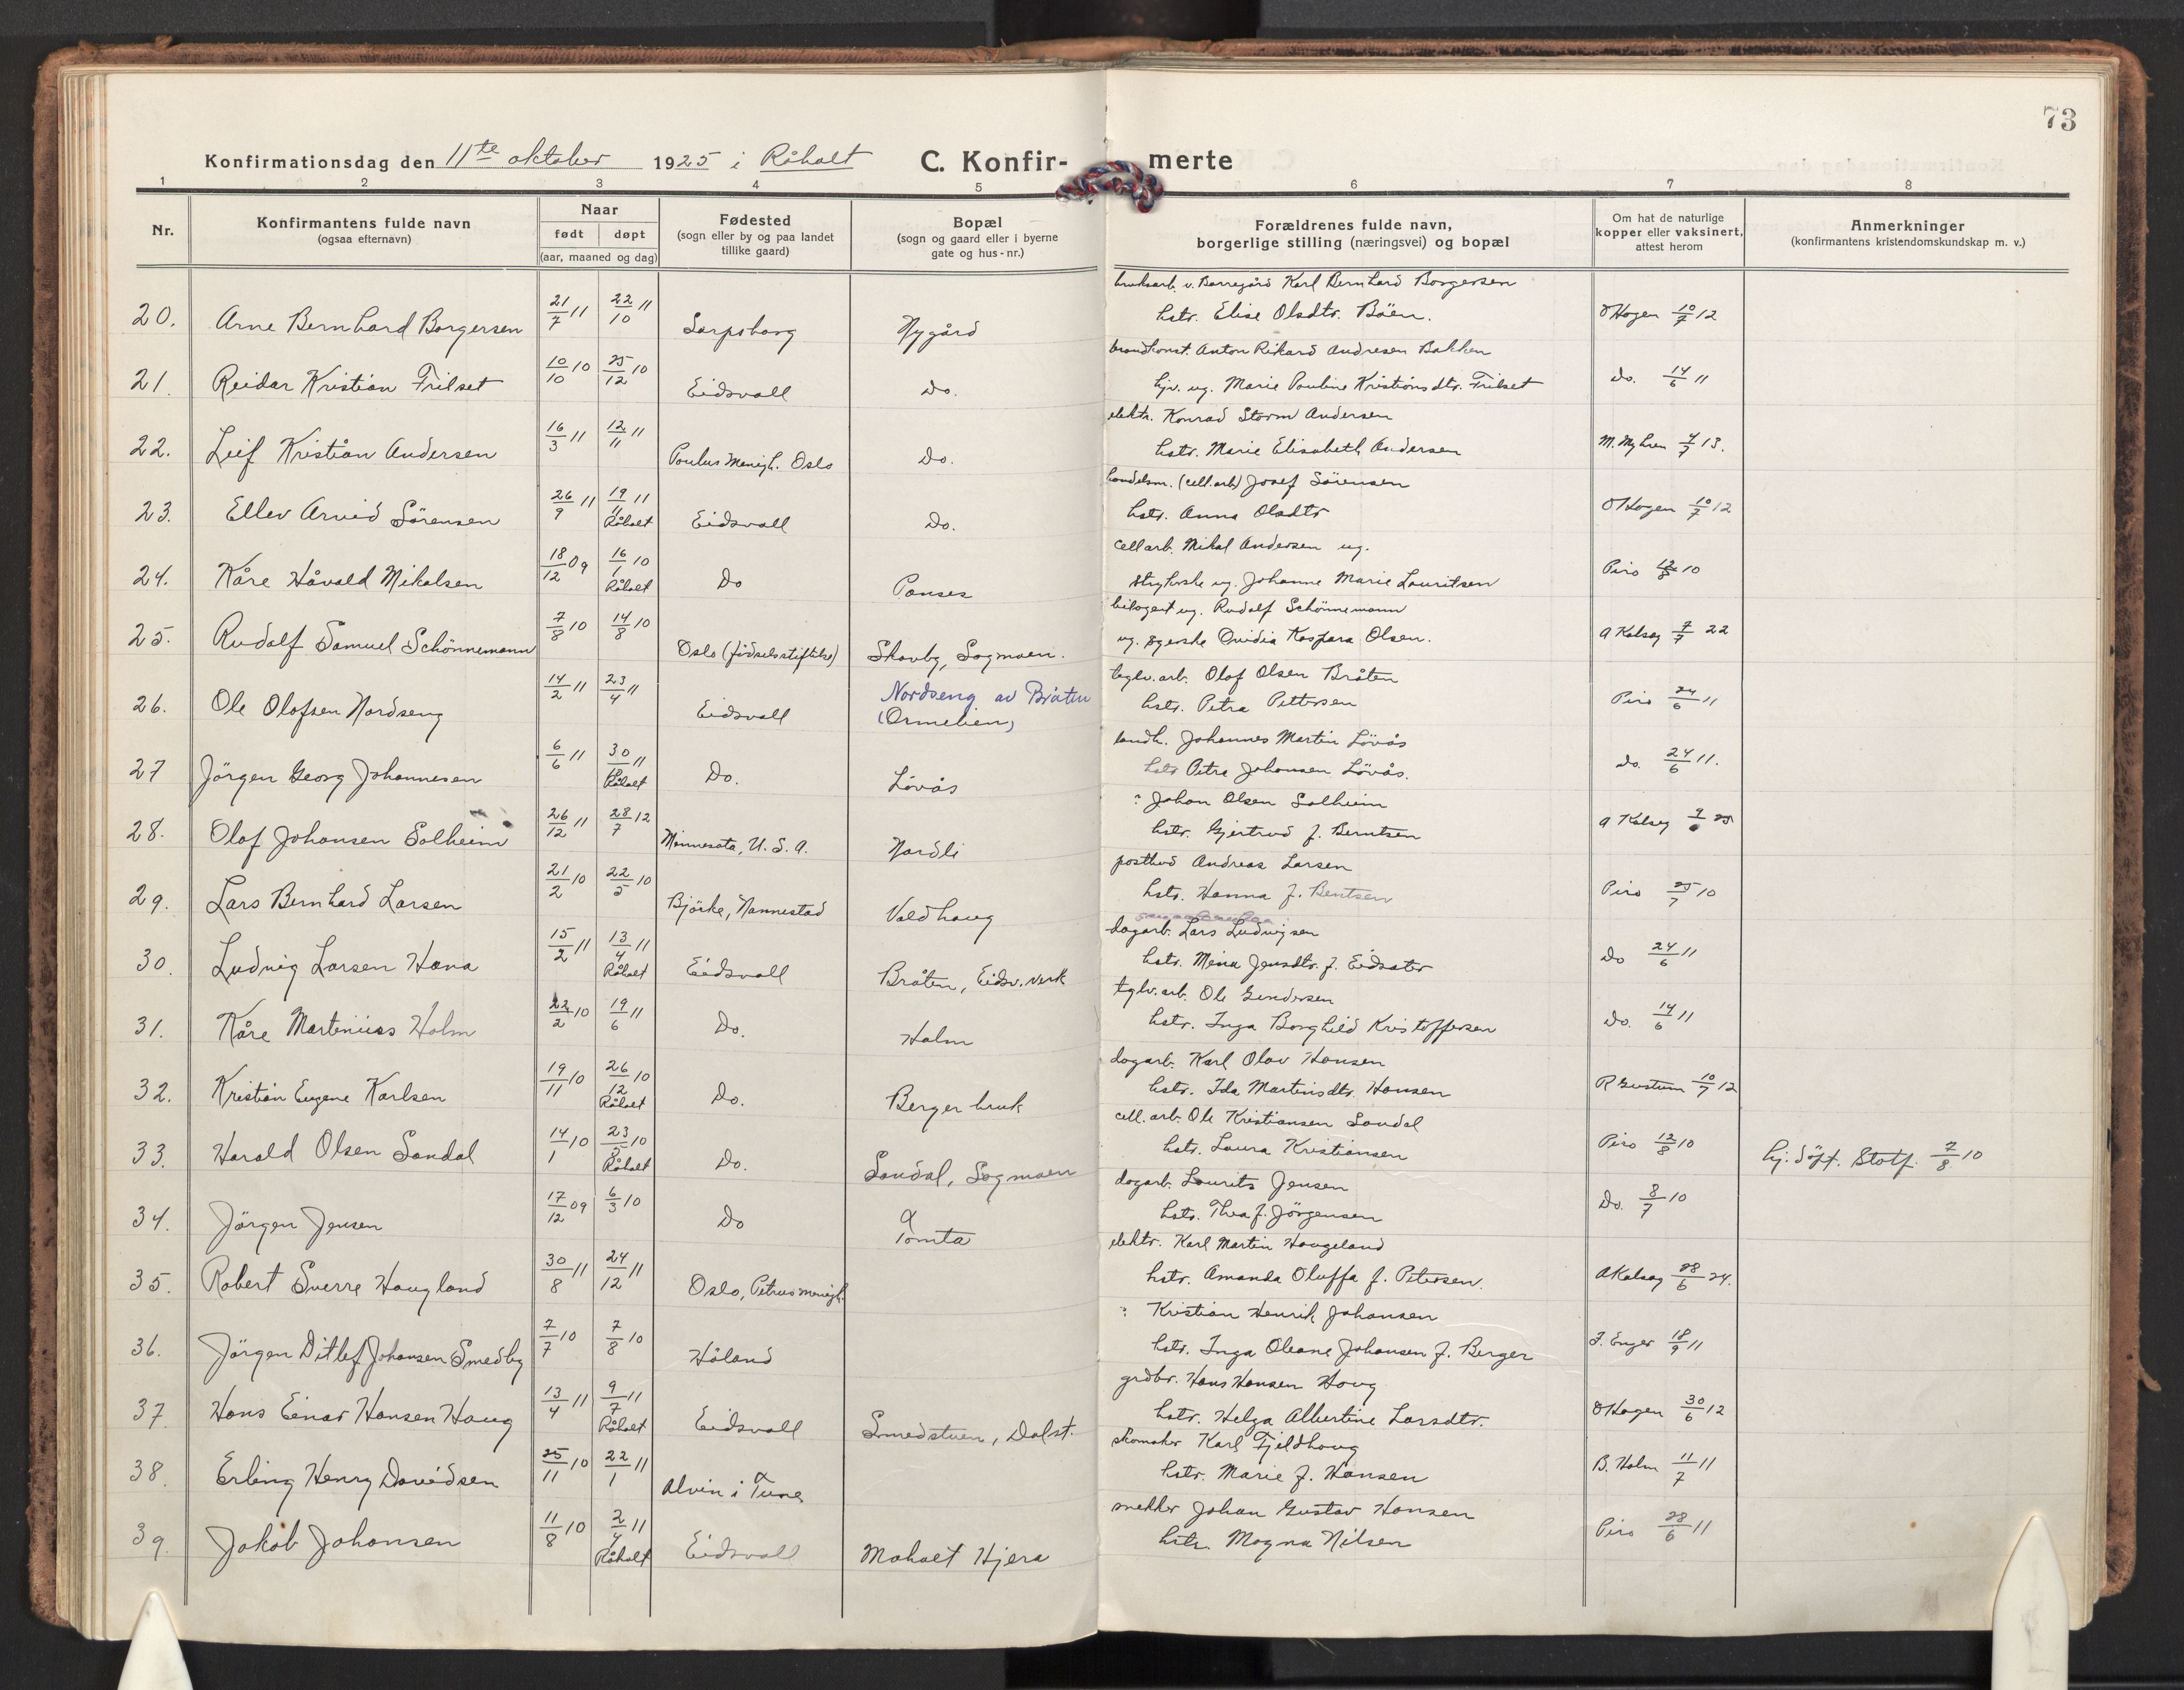 73
Konfirmationsdag den 11te oktober 1925 i Råholt C. Konfir- merte
1 2 3 4 5 6 7 8
Nr.
Konfirmantens fulde navn
(ogsaa efternavn)
Naar
født døpt
(aar, maaned og dag)
Fødested
(sogn eller by og paa landet
tillike gaard)
Bopæl
(sogn og gaard eller i byerne
gate og hus-nr.)
Forældrenes fulde navn,
borgerlige stilling (næringsvei) og bopæl
Om hat de naturlige
kopper eller vaksinert,
attest herom
Anmerkninger
(konfirmantens kristendomskundskap m. v.)
bruksarb. v. Borregård Karl Bernhard Borgersen
20. Arne Bernhard Borgersen 21/7 11 22/10 11 Sarpsborg Nygård hstr. Elise Olsdtr. Böen. O Hagen 10/7 12
Anton Rikard Andresen Bakken
21. Reidar Kristian Frilset 10/10 10 25/12 10 Eidsvall Do. ug. Marie Pouline Kristiansdtr. Frilset Do. 14/6 11
elektr. Konrad Storm Andersen
22. Leif Kristian Andersen 16/3 11 12/11 11 Paulus Menigh. Oslo Do. hstr. Marie Elisabeth Andersen M. Myhren 4/7 13.
handelsm. (cell.arb) Josef Sörensen
23. Ellev Arvid Sörensen 26/9 11 19/11 11 Råholt Eidsvall Do. hstr. Anna Olsdtr O Hagen 10/7 12
cellarb. Mikal Andersen ug.
24. Kåre Håvald Mikalsen 18/12 09 16/1 10 Råholt Do Panses ug. Johanne Marie Lauritsen Piro 12/8 10
ug. Rudolf Schönnemann
25. Rudolf Samuel Schönnemann 7/8 10 14/8 10 Oslo (födselsstiftelse) Skovby, Sagmoen. ug. Ovidia Kaspara Olsen. A Kalseg 7/7 22
teglv. arb. Olof Olsen Bråten
26. Ole Olofsen Nordseng 14/2 11 23/4 11 Eidsvall Nordseng av Bråten (Ormelien) hstr. Petra Pettersen Piro 24/6 11
landh. Johannes Martin Lövås
27 Jörgen Georg Johannesen 6/6 11 30/7 11 Råholt Do. Lövås hstr Petra Johansen Lövås. Do. 24/6 11.
: Johan Olsen Solheim
28. Olof Johansen Solheim 26/12 11 28/7 12 Minnesota, U. S. A. Nordli hstr. Gjertrud f. Berntsen A Kalseg
postbud Andreas Larsen
29. Lars Bernhard Larsen 21/2 10 22/5 10 Björke, Nannestad Valdhaug hstr. Hanna f. Bentsen Piro 25/7 10
dagarb. Lars Ludvigsen
30. Ludvig Larsen Hana 15/2 11 13/4 11 Råholt Eidsvall Bråten, Eidsv. verk hstr. Mina Jensdtr. f. Eidsäter Do 24/6 11
tglv. arb. Ole Gundersen
31. Kåre Martinius Holm 22/2 10 19/6 11 Do. Holm hstr. Inga Borghild Kristoffersen Do. 14/6 11
dagarb. Karl Olav Hansen
32. Kristian Eugene Karlsen 19/11 10 26/12 10 Råholt Do. Berger bruk hstr. Ida Martinsdtr. Hansen R Gustum 10/7 12
cell. arb. Ole Kristiansen Sandal
33. Harald Olsen Sandal 14/1 10 23/5 10 Råholt Do. Sandal, Sagmoen hstr. Laura Kristiansen Piro 12/8 10 hj. döpt. Stotf. 7/8 10
dagarb. Laurits Jensen
34. Jörgen Jensen 17/12 09 6/3 10 Do Tomta hstr. Thea f. Jörgensen Do. 8/7 10
elektr. Karl Martin Haugeland
35. Robert Sverre Haugland 30/8 11 24/12 11 Oslo, Petrus menigh. hstr. Amanda Oluffa f. Petersen. A Kalseg 28/6 24.
: Kristian Henrik Johansen
36. Jörgen Ditlef Johansen Smedby 7/7 10 7/8 10 Höland hstr. Inga Oleane Johansen f. Berger F. Enger 18/9 11
grdbr. Hans Hansen Haug
37. Hans Einar Hansen Haug 13/4 11 9/7 11 Råholt Eidsvall Smedstuen, Dalst. hstr. Helga Albertine Larsdtr. O Hagen 30/6 12
skomaker Karl Fjeldhaug
38. Erling Henry Davidsen 25/11 10 22/1 11 Alvin i Tune hstr. Marie f. Hansen B. Holm 11/7 11
snekker Johan Gustav Hansen
39. Jakob Johansen 11/8 10 2/4 11 Råholt Eidsvall Moholt Hjera hstr. Magna Nilsen Piro 28/6 11